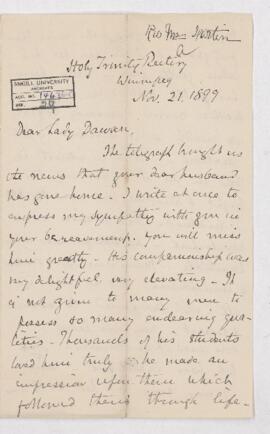 Holy Trinity Rectory
Winnipeg
Nov. 21, 1899
McGILL UNIVERSITY
ARCHIVES
ACC. NO.
REF.
Dear Lady Dawson,
The telegraph brought us
the news that your dear husband
has gone home. I write at once to
express my sympathy with you in
your bereavement. You will miss
him greatly. His companionship was
very delightful, very elevating. It
is not given to many men to
possess so many endearing qua-
lities. Thousands of his students
loved him truly & he made an
impression upon them which
followed them through life.